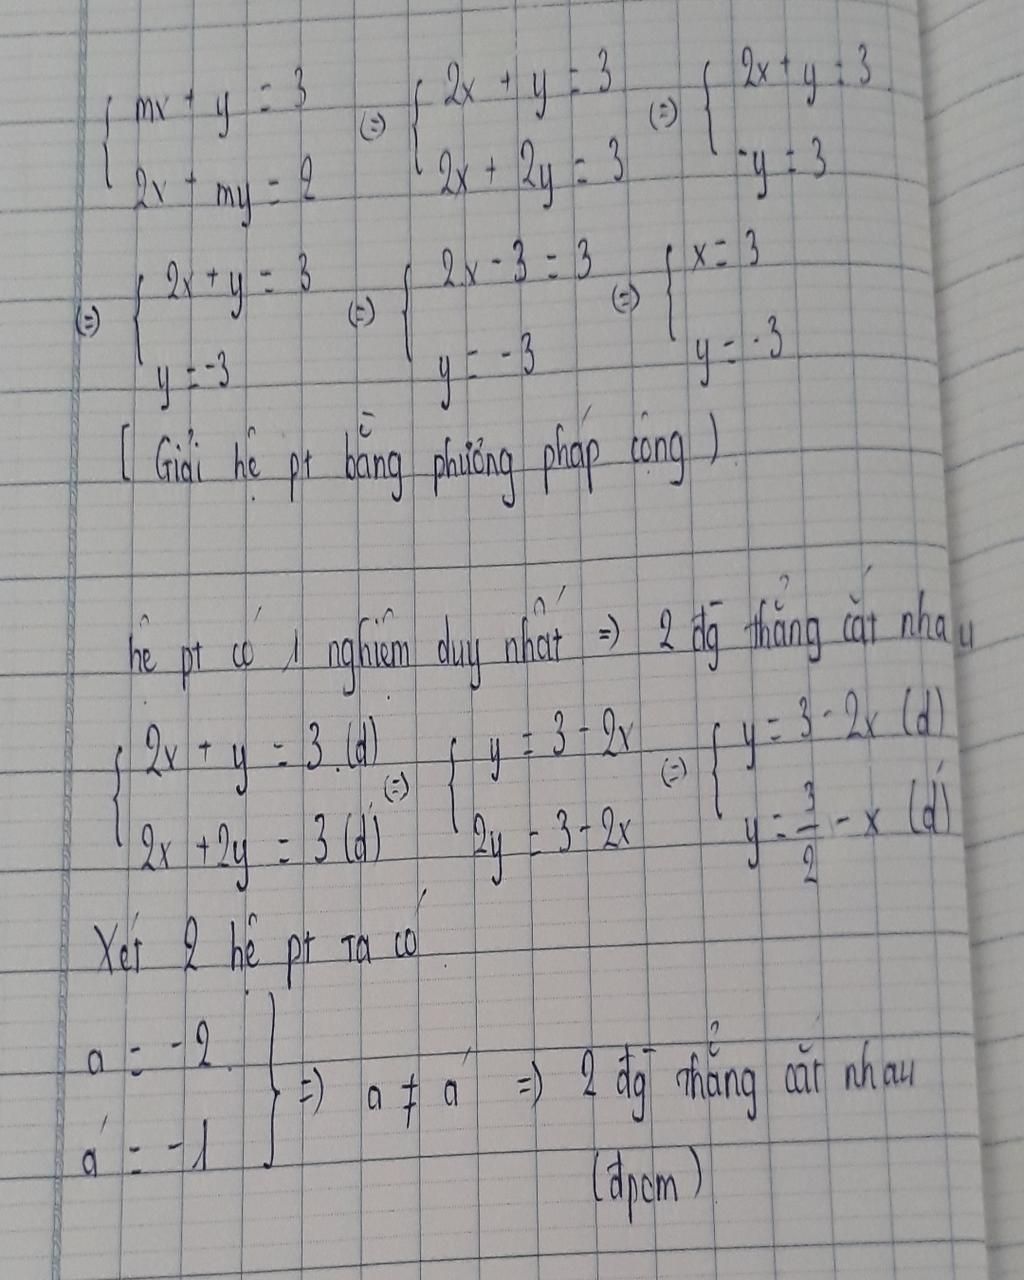 { mx + y = 3 (=) { 2x + y = 3 (=) { 2x + y = 3
2x + my = 2 2x + 2y = 3 -y = 3
(=) { 2x + y = 3 (=) { 2x - 3 = 3 (=) { x = 3
y = -3 y = -3 y = -3
( Giải hệ pt bằng phương pháp cộng )
hệ pt có 1 nghiệm duy nhất => 2 đg thẳng cắt nhau
{ 2x + y = 3 (d) (=) { y = 3 - 2x (=) { y = 3 - 2x (d)
2x + 2y = 3 (d') 2y = 3 - 2x y = 3/2 - x (d')
Xét 2 hệ pt ta có
a = -2 } => a ≠ a' => 2 đg thẳng cắt nhau
a' = -1
(đpcm)